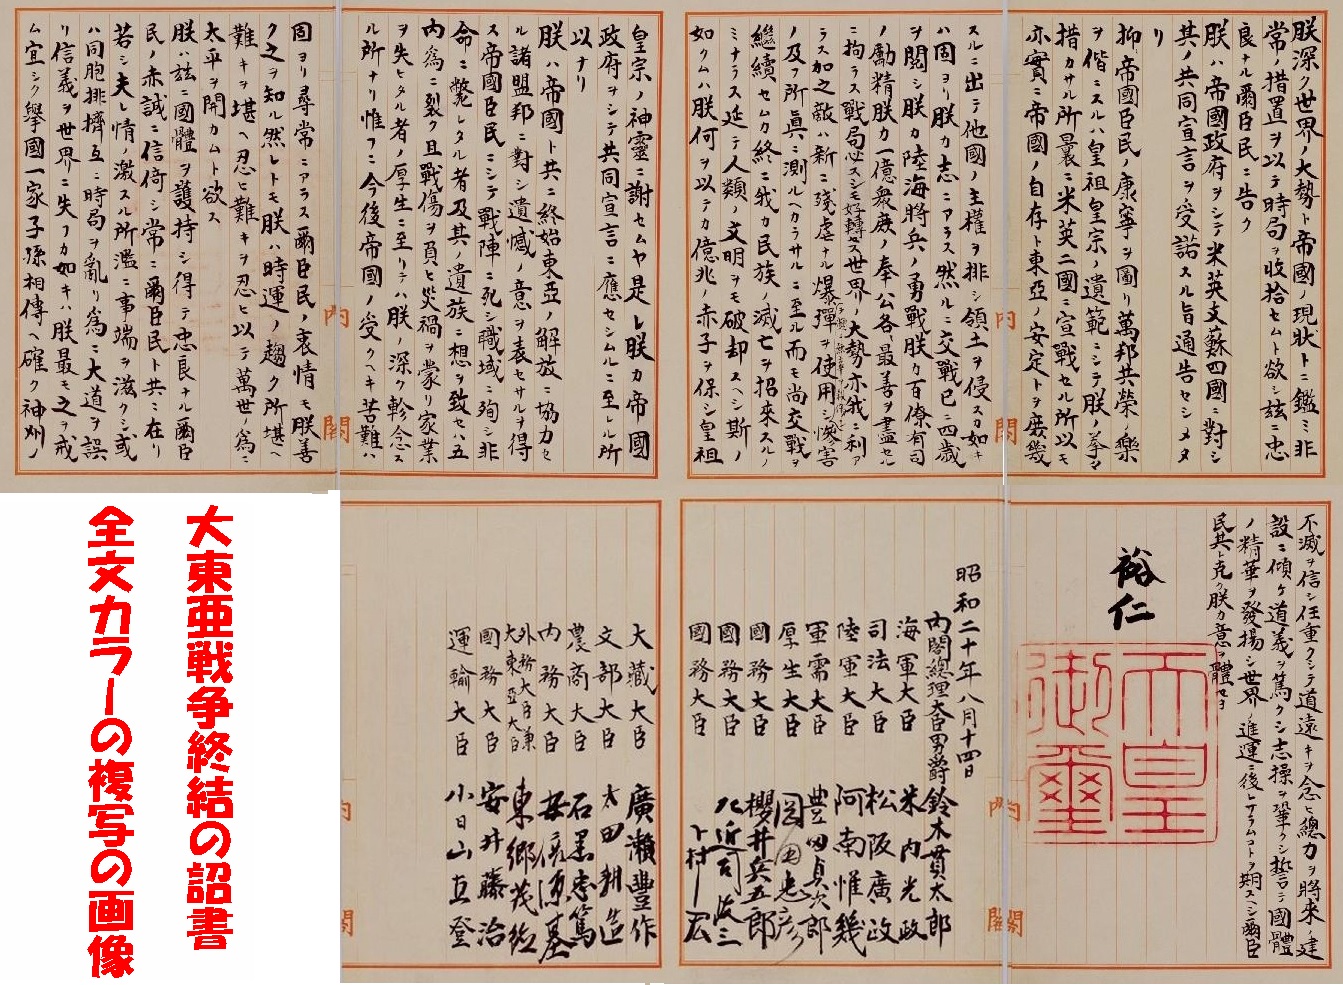 朕深ク世界ノ大勢ト帝國ノ現狀トニ鑑ミ非
常ノ措置ヲ以テ時局ヲ收拾セムト欲シ茲ニ忠
良ナル爾臣民ニ告ク
朕ハ帝國政府ヲシテ米英支蘇四國ニ對シ
其ノ共同宣言ヲ受諾スル旨通告セシメタ
リ
抑〻帝國臣民ノ康寧ヲ圖リ萬邦共榮ノ樂
ヲ偕ニスルハ皇祖皇宗ノ遺範ニシテ朕ノ拳〻
措カサル所曩ニ米英二國ニ宣戰セル所以モ
亦實ニ帝國ノ自存ト東亞ノ安定トヲ庶幾
スルニ出テ他國ノ主權ヲ排シ領土ヲ侵スカ如キ
ハ固ヨリ朕カ志ニアラス然ルニ交戰已ニ四歲
ヲ閱シ朕カ陸海將兵ノ勇戰朕カ百僚有司
ノ勵精朕カ一億衆庶ノ奉公各〻最善ヲ盡セル
ニ拘ラス戰局必スシモ好轉セス世界ノ大勢亦我ニ利ア
ラス加之敵ハ新ニ殘虐ナル爆彈ヲ使用シテ頻ニ無辜ヲ殺傷シ慘害
ノ及フ所眞ニ測ルヘカラサルニ至ル而モ尚交戰ヲ
繼續セムカ終ニ我カ民族ノ滅亡ヲ招來スルノ
ミナラス延テ人類ノ文明ヲモ破却スヘシ斯ノ
如クムハ朕何ヲ以テカ億兆ノ赤子ヲ保シ皇祖
皇宗ノ神靈ニ謝セムヤ是レ朕カ帝國
政府ヲシテ共同宣言ニ應セシムルニ至レル所
以ナリ
朕ハ帝國ト共ニ終始東亞ノ解放ニ協力セ
ル諸盟邦ニ對シ遺憾ノ意ヲ表セサルヲ得
ス帝國臣民ニシテ戰陣ニ死シ職域ニ殉シ非
命ニ斃レタル者及其ノ遺族ニ想ヲ致セハ五
內爲ニ裂ク且戰傷ヲ負ヒ災禍ヲ蒙リ家業
ヲ失ヒタル者ノ厚生ニ至リテハ朕ノ深ク軫念ス
ル所ナリ惟フニ今後帝國ノ受クヘキ苦難ハ
固ヨリ尋常ニアラス爾臣民ノ衷情モ朕善
ク之ヲ知ル然レトモ朕ハ時運ノ趨ク所堪ヘ
難キヲ堪ヘ忍ヒ難キヲ忍ヒ以テ萬世ノ爲ニ
太平ヲ開カムト欲ス
朕ハ茲ニ國體ヲ護持シ得テ忠良ナル爾臣
民ノ赤誠ニ信倚シ常ニ爾臣民ト共ニ在リ
若シ夫レ情ノ激スル所濫ニ事端ヲ滋クシ或
ハ同胞排擠互ニ時局ヲ亂リ爲ニ大道ヲ誤
リ信義ヲ世界ニ失フカ如キハ朕最モ之ヲ戒
ム宜シク擧國一家子孫相傳ヘ確ク神州ノ
不滅ヲ信シ任重クシテ道遠キヲ念ヒ總力ヲ將來ノ建
設ニ傾ケ道義ヲ篤クシ志操ヲ鞏クシ誓テ國體
ノ精華ヲ發揚シ世界ノ進運ニ後レサラムコトヲ期スヘシ爾臣
民其レ克ク朕カ意ヲ體セヨ
裕仁
天皇
御璽
昭和二十年八月十四日
內閣總理大臣男爵 鈴木貫太郎
海軍大臣 米內光政
司法大臣 松阪廣政
陸軍大臣 阿南惟幾
軍需大臣 豊田貞次郎
厚生大臣 岡田忠彦
國務大臣 櫻井兵五郎
國務大臣 左近司政三
國務大臣 下村宏
大藏大臣 廣瀨豐作
文部大臣 太田耕造
農商大臣 石黑忠篤
內務大臣 安倍源基
外務大臣兼
大東亞大臣 東鄉茂德
國務大臣 安井藤治
運輸大臣 小日山直登
內閣
內閣
內閣
內閣
大東亜戦争終結の詔書
全文カラーの複写の画像